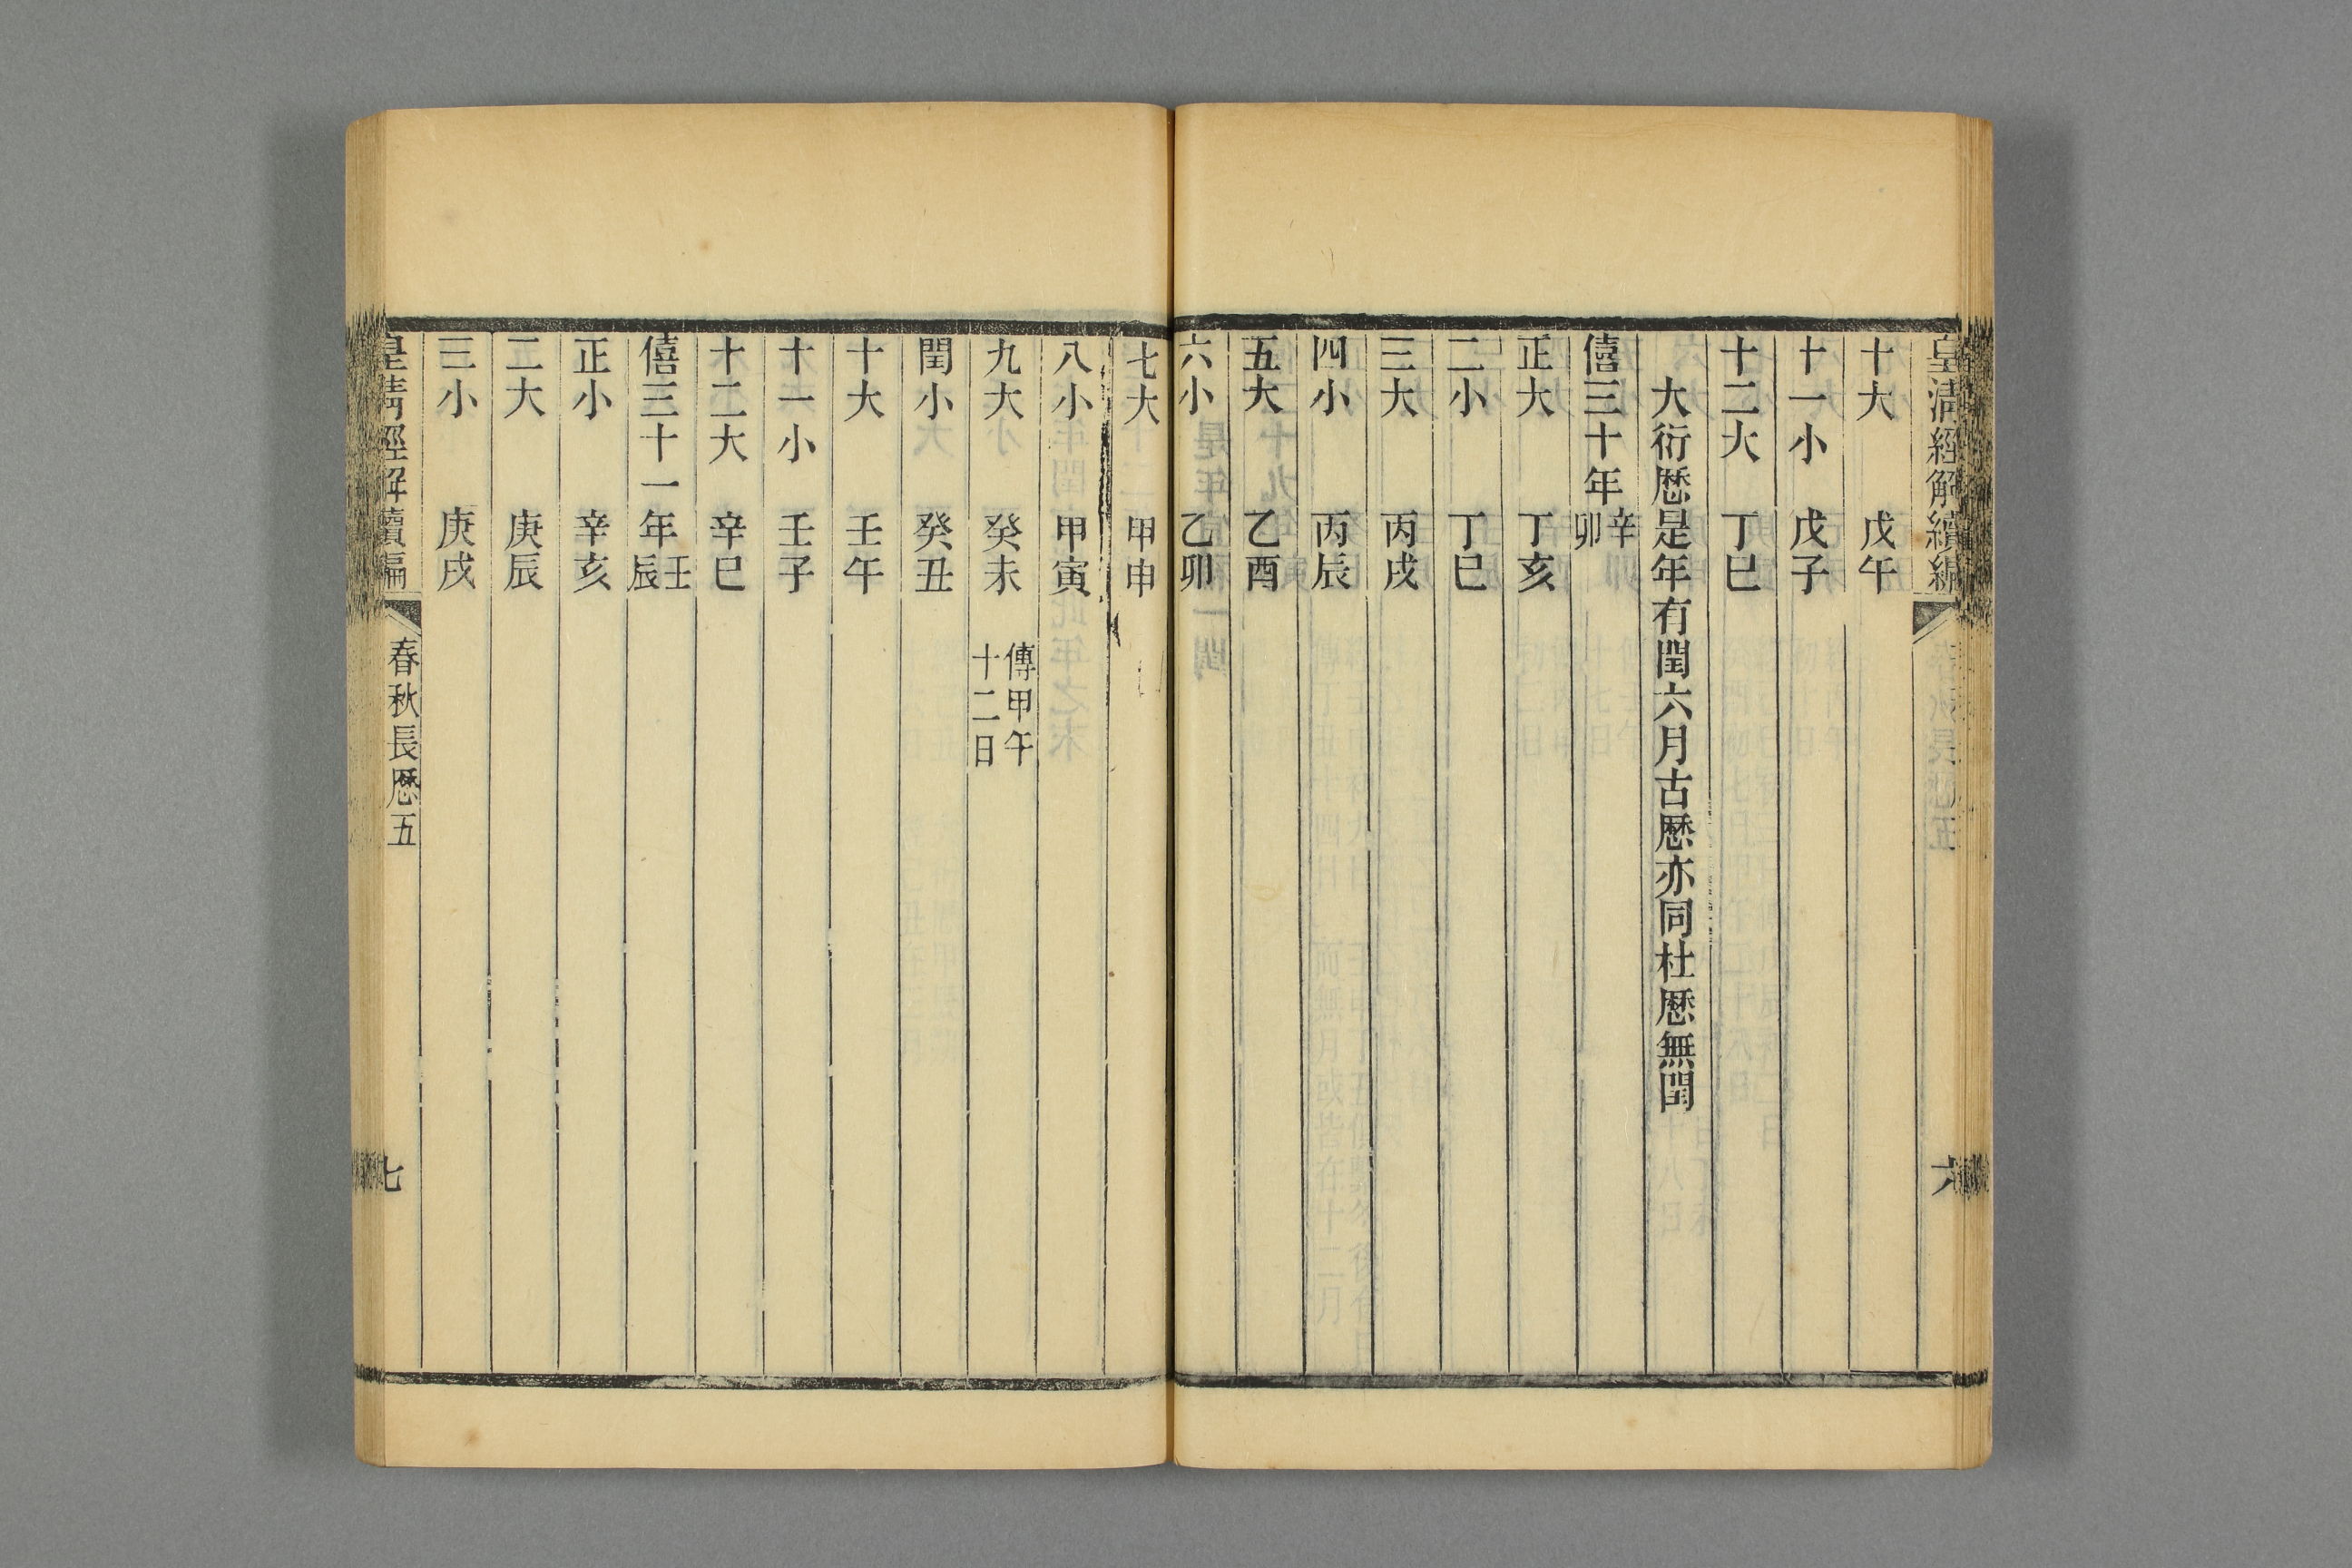 皇清經解續編
六
十大 戊午
十一小 戊子
十二大 丁巳
大衍厯是年有閏六月古厯亦同杜厯無閏
僖三十年辛卯
正大 丁亥
二小 丁巳
三大 丙戌
四小 丙辰
五大 乙酉
六小 乙卯
七大 甲申
八小 甲寅
九大 癸未 傳甲午十二日
閏小 癸丑
十大 壬午
十一小 壬子
十二大 辛巳
僖三十一年壬辰
正小 辛亥
二大 庚辰
三小 庚戌
皇清經解續編 春秋長厯五 七